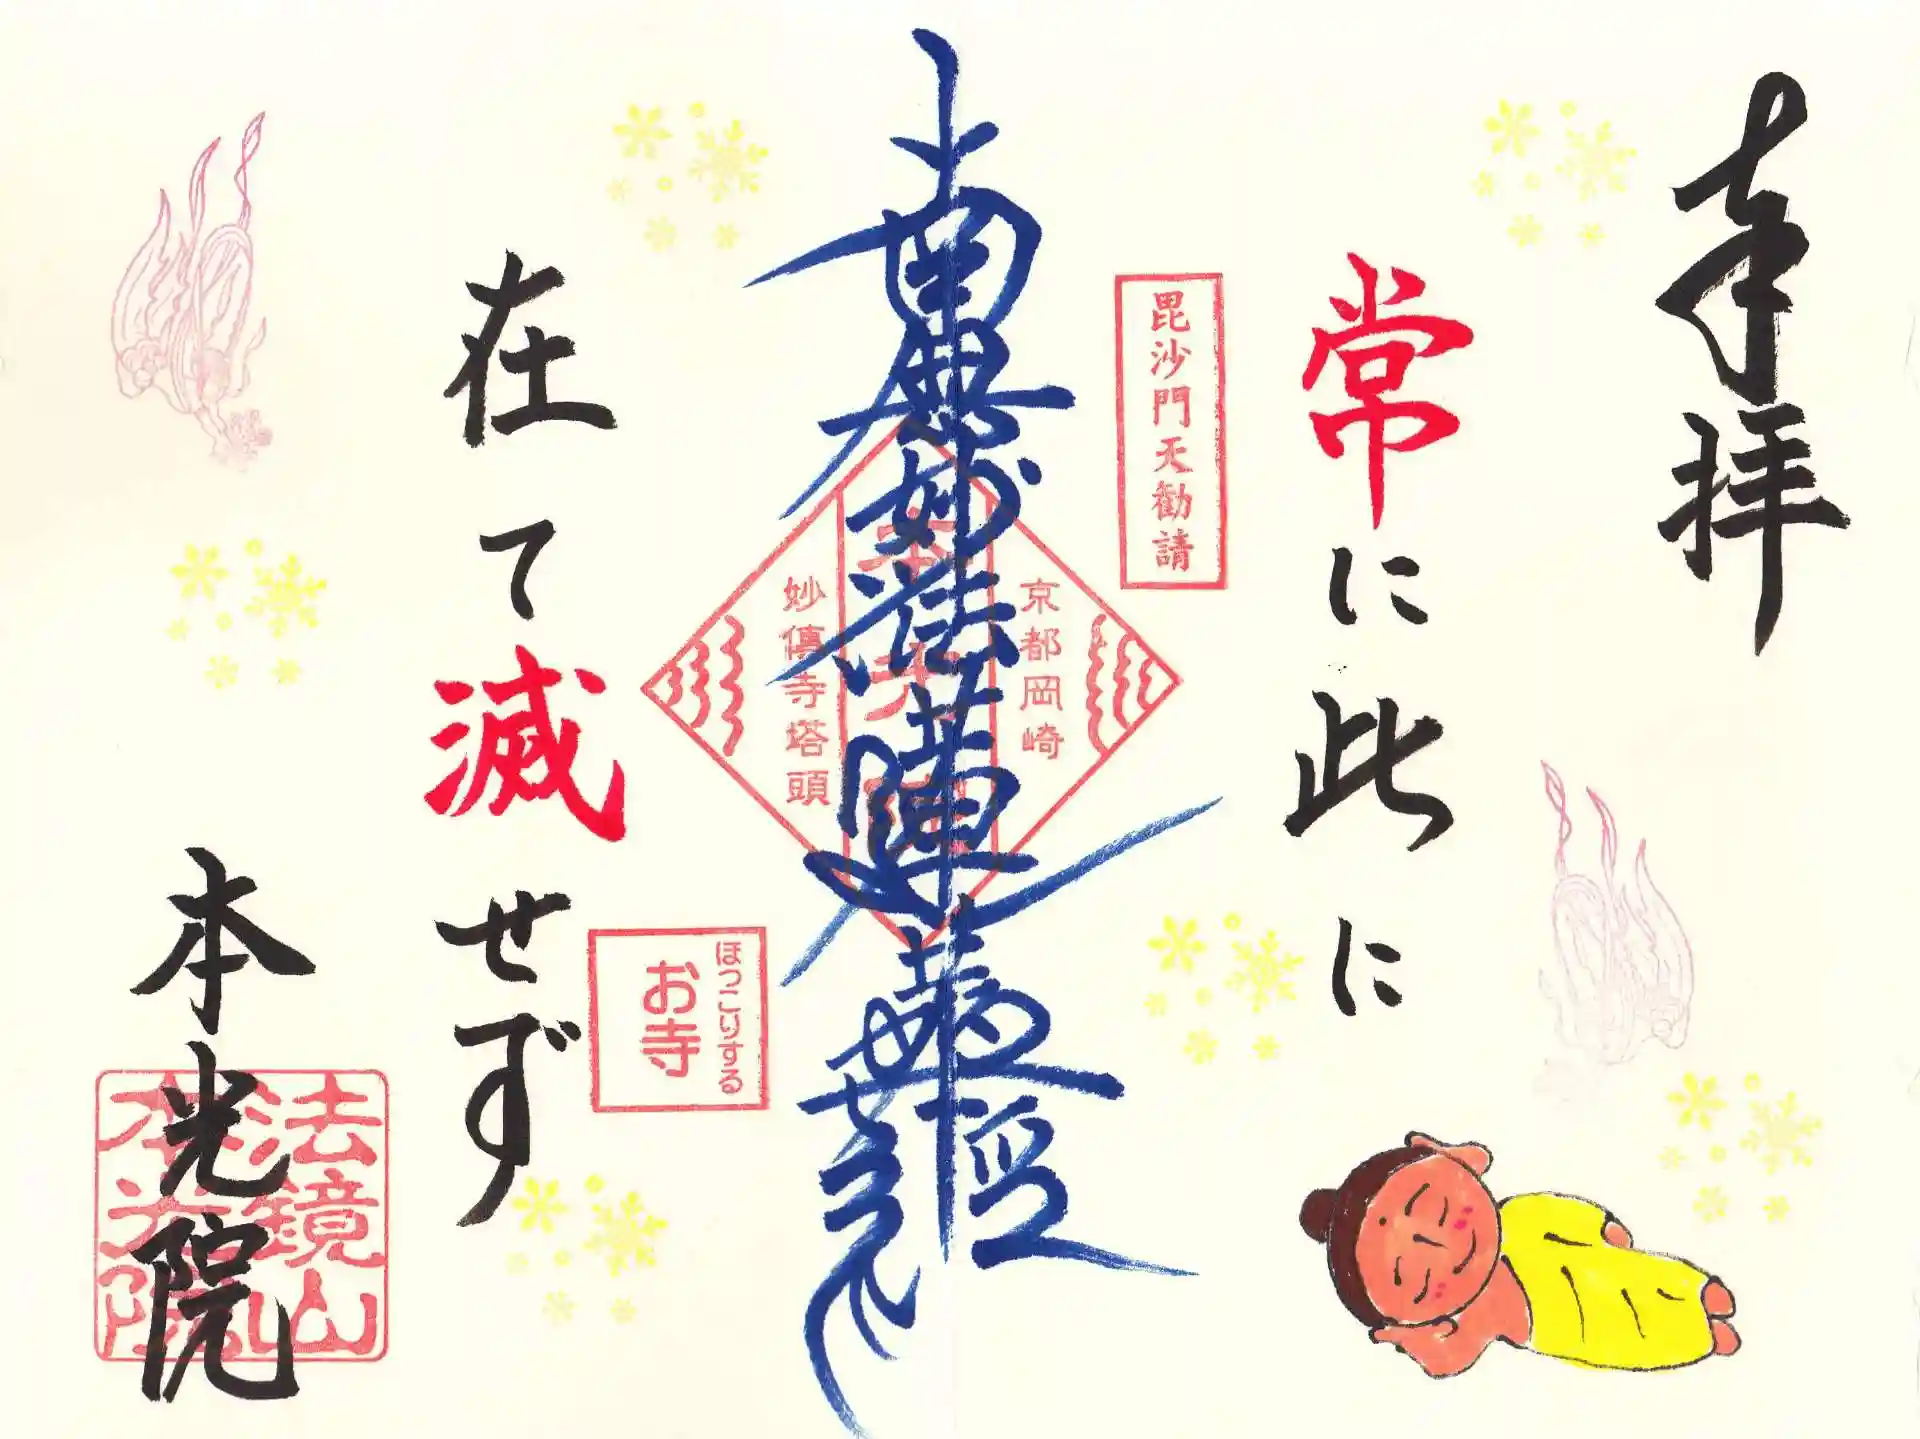 奉拝
常に此に
毘沙門天勧請
南無妙法蓮華経
京都岡崎
本光院
妙傳寺塔頭
在て滅せず
ほっこりする
お寺
本光院
法鏡山
本光院